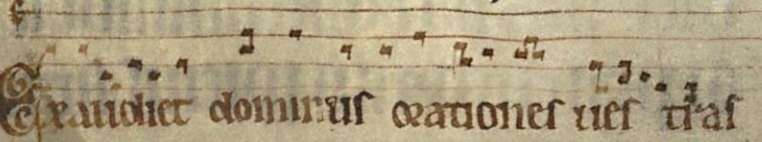 Exaudiet dominus orationes ues tras